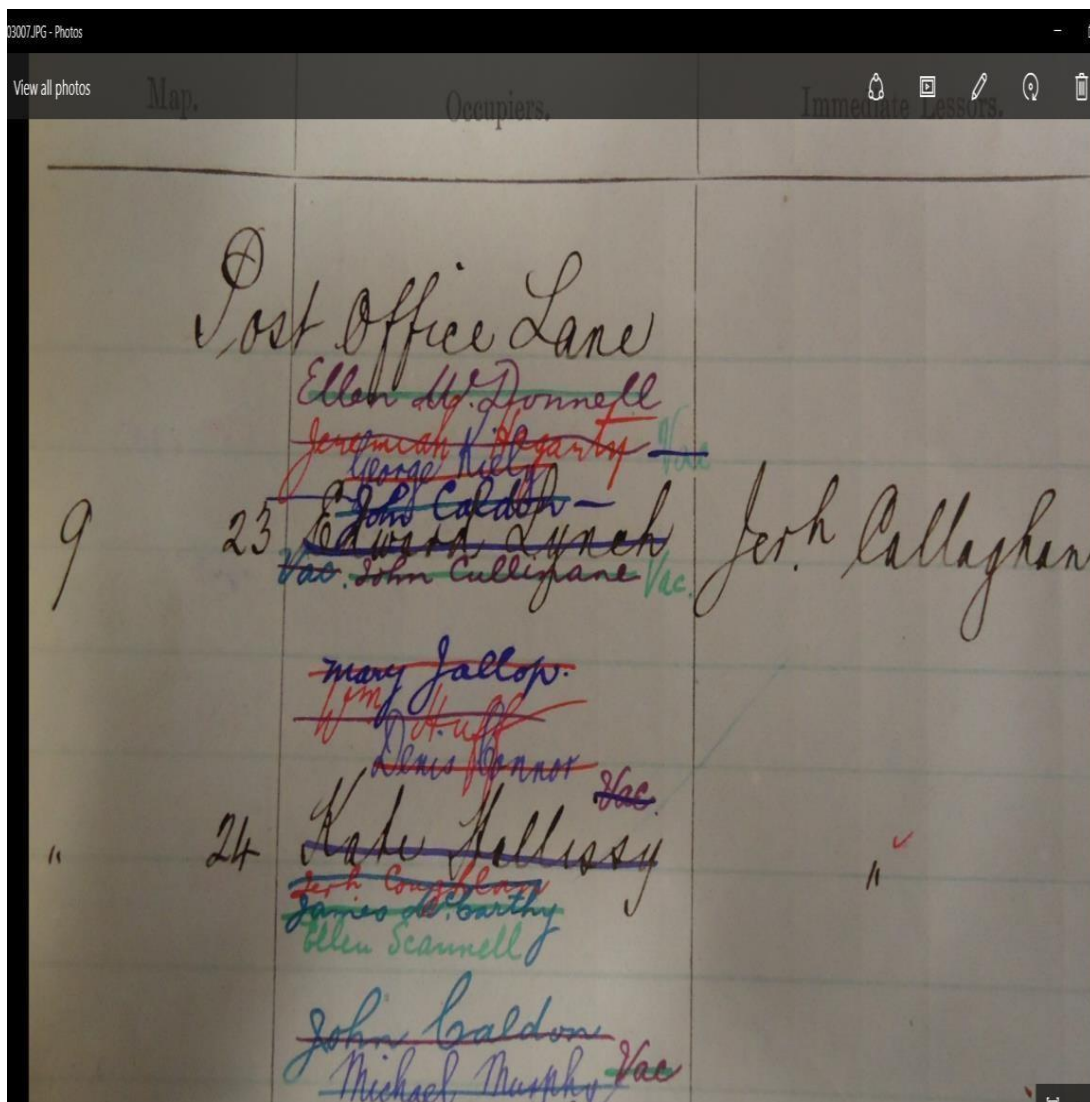 03007.JPG - Photos
View all photos
Map. Occupiers. Immediate Lessors.
Post Office Lane
Ellen McDonnell
Jeremiah Hegarty Vac
George Kiely
John Caldon
9 23 Edward Lynch Jerh. Callaghan
Vac. John Cullinane Vac.
Mary Jallop.
Wm Huff
Denis Connor
Vac.
" 24 Kate Hellissy "
Jerh Coughlan
James McCarthy
Ellen Scannell
John Caldon
Michael Murphy Vac